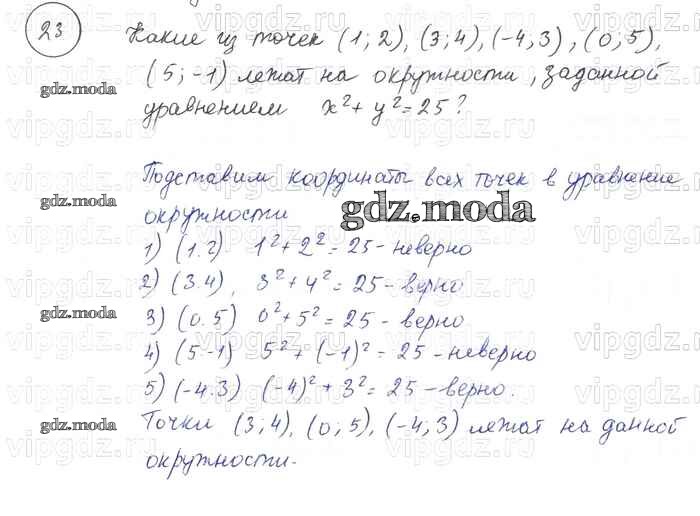 23 Какие из точек (1; 2), (3; 4), (-4, 3), (0; 5),
(5; -1) лежат на окружности, заданной
уравнением x²+ y²=25?
Подставим координаты всех точек в уравнение
окружности
1) (1.2). 1²+2²=25-неверно
2) (3.4), 3²+4²=25-верно
3) (0.5) 0²+5²=25- верно
4) (5.-1) 5²+(-1)²=25-неверно
5) (-4.3) (-4)²+3²=25-верно.
Точки (3;4), (0;5), (-4,3) лежат на данной
окружности.
gdz.moda
gdz.moda
gdz.moda
gdz.moda
gdz.moda
vipgdz.